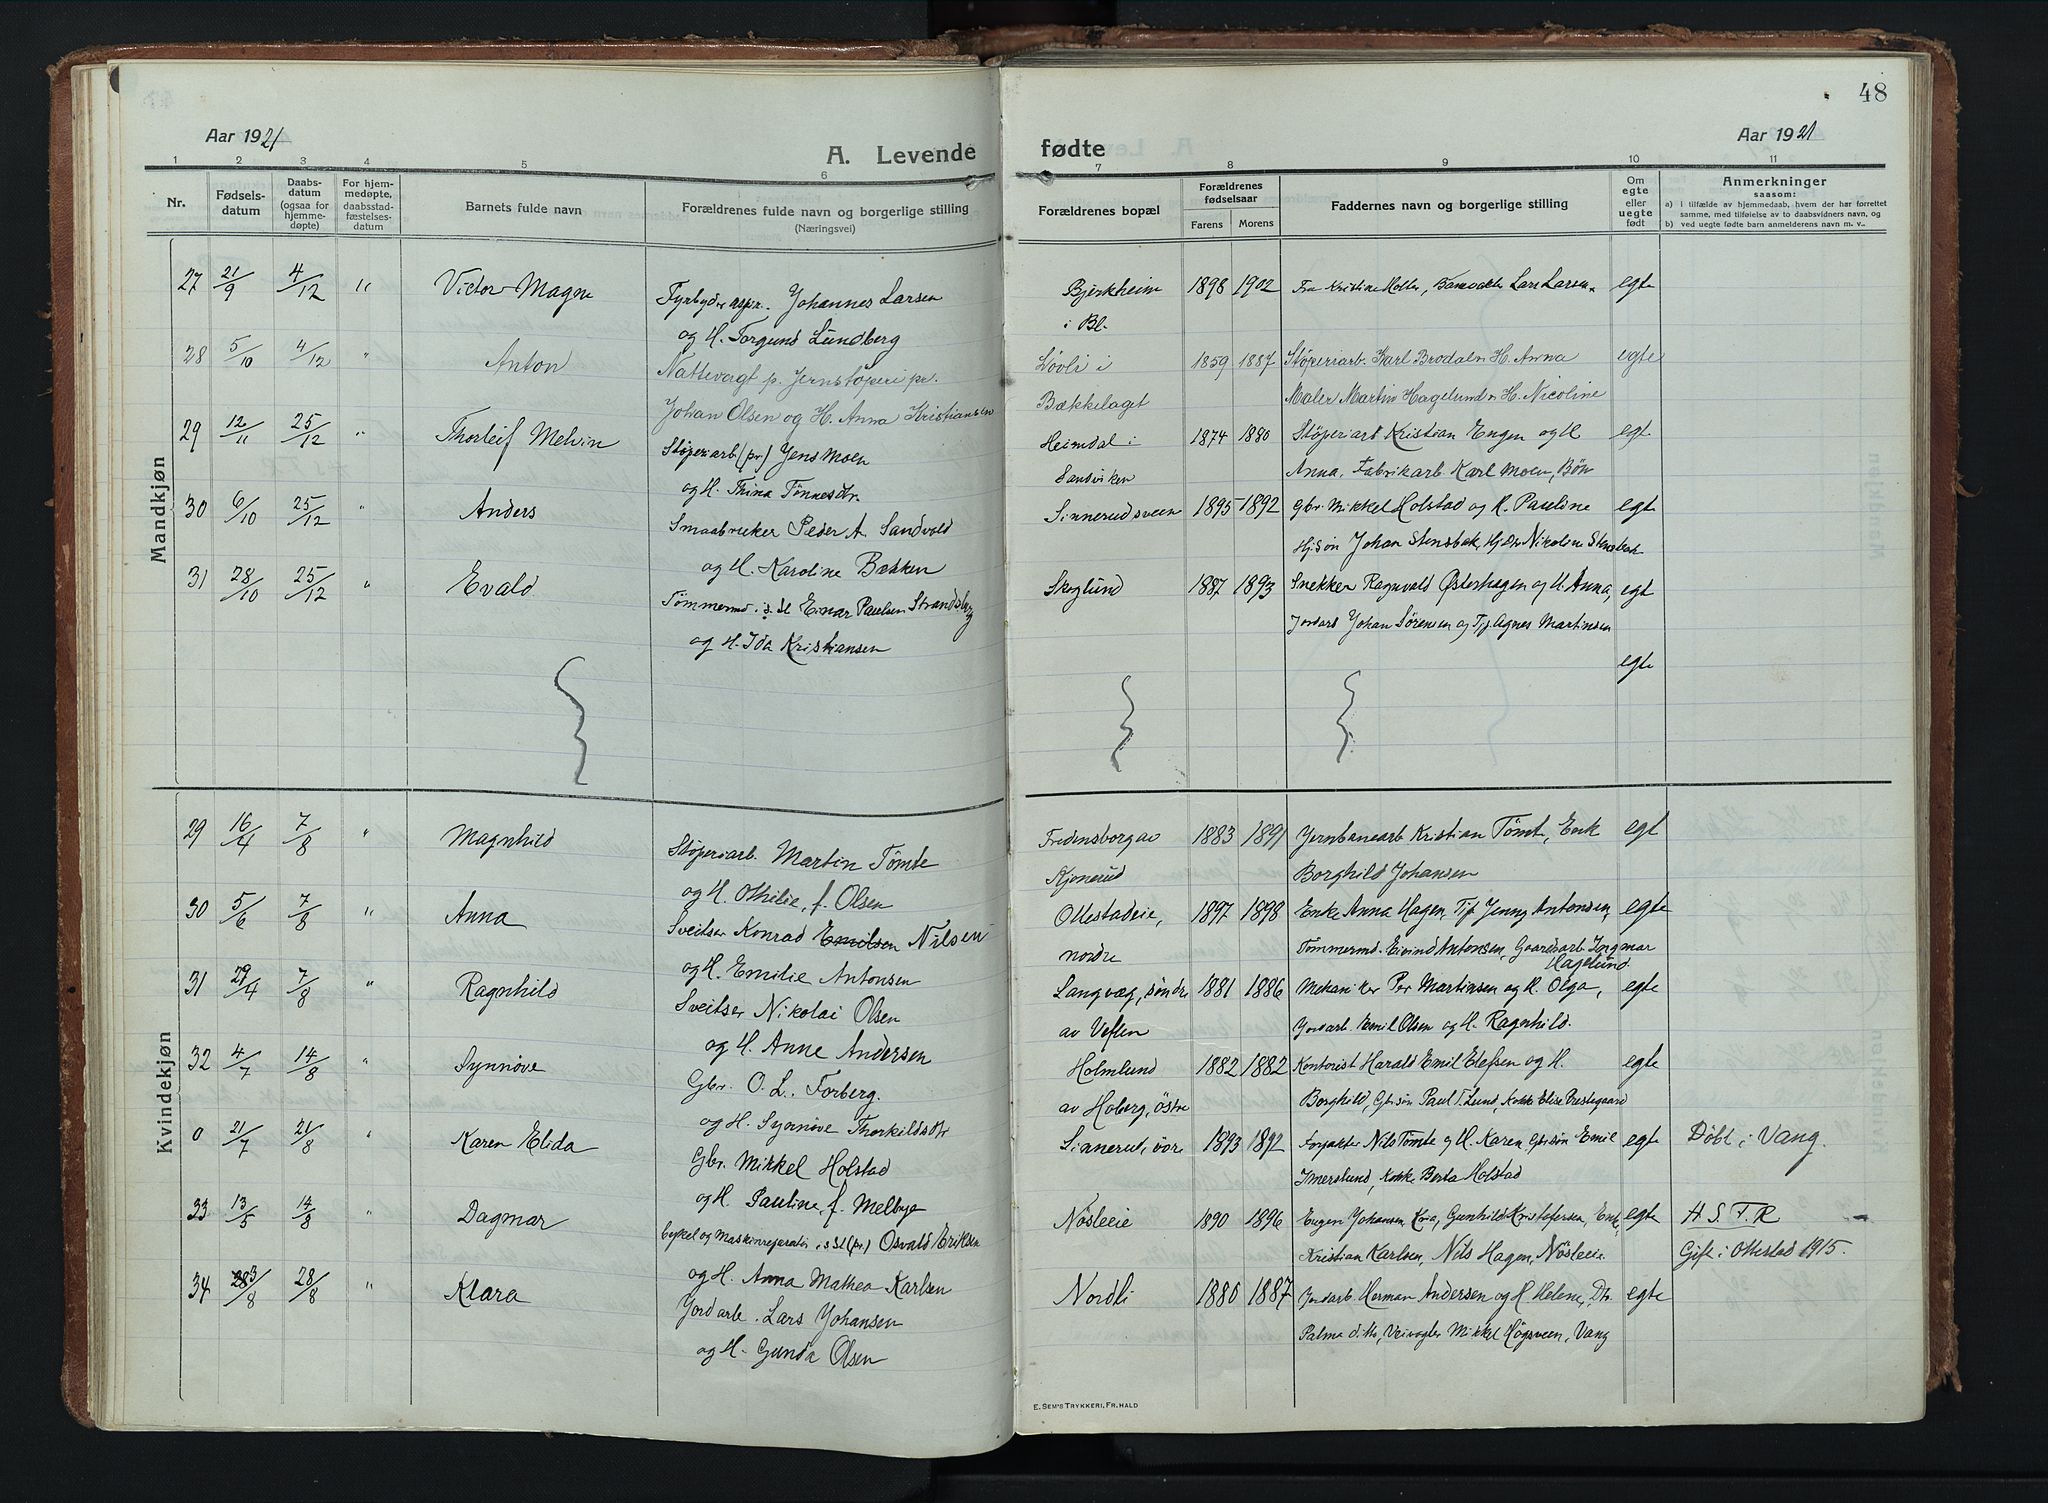 48
Aar 1921
A. Levende
fødte
Aar 1921
1 2 3 4 5 6 7 8 9 10 11
Nr.
Fødsels-
datum
Daabs-
datum
(ogsaa for
hjemme-
døpte)
For hjem-
medøpte,
daabsstad-
fæstelses-
datum
Barnets fulde navn
Forældrenes fulde navn og borgerlige stilling
(Næringsvei)
Forældrenes bopæl
Forældrenes
fødselsaar
Farens Morens
Faddernes navn og borgerlige stilling
Om
egte
eller
uegte
født
Anmerkninger
saasom:
a) i tilfælde av hjemmedaab, hvem der har forrettet
samme, med tilføielse av to daabsvidners navn, og
b) ved uegte fødte barn anmelderens navn m. v..
Mandkjøn
27 21/9 4/12 " Victor Magne Fyrbyder aspr. Johannes Larsen Bjerkheim 1898 1902 Fru Kristine Holter, Banevakter Lars Larsen egte
og H. Torgund Lundberg i Bl.
28 5/10 4/12 " Anton Nattevagt p. Jernstøperi pr. Løvli i 1859 1887 Støperiarb. Karl Brodalen H. Anna egte
Johan Olsen og H. Anna Kristiansen Bækkelaget Maler Martin Hagelund n H. Nicoline
29 12/11 25/12 " Thorleif Melvin Støperiarb (pr) Jens Moen Heimdal i 1874 1880 Støperiarb Kristian Engen og H egt
og H. Thina Tønnesdtr. Sandviken Anna, Fabrikarb. Karl Moen, Bøn
30 6/10 25/12 " Anders Smaabruker Peder A. Sandvold Sinnerudsveen 1895 1892 Gbr. Mikkel Holstad og H. Pauline egte
og H. Karoline Bakken Hj.søn Johan Stensbak, Hj.Dtr Nikoline Stensbak
31 28/10 25/12 " Evald Tømmermd. i. sl Einar Paulsen Strandsberg Skoglund 1887 1893 Snekker Ragnvald Østerhagen og H. Anna, egte
og H. Ida Kristiansen Jordarb Johan Sørensen og Tj. Agnes Martinsen
egte
Kvindekjøn
29 16/4 7/8 " Magnhild Støperiarb. Martin Tømte Fredensborg av 1883 1891 Jernbanearb Kristian Tømt, Enk egt
og H. Othilie, f. Olsen Kjonerud Borghild Johansen
30 5/6 7/8 " Anna Sveitser Konrad Emilsen Nilsen Ottestadeie, 1897 1898 Enke Anna Hagen, Tjp Jenny Antonsen, egte
og H. Emilie Antonsen nordre Tømmermd. Eivind Antonsen, Gaardsarb Ingmar
Hagelund.
31 29/4 7/8 " Ragnhild Sveitser Nikolai Olsen Langvæg, søndre 1881 1886 Mekaniker Per Martinsen og H. Olga, egte
og H. Anne Andersen av Veflen Jordarb Emil Olsen og H. Ragnhild.
32 4/7 14/8 " Synnøve Gbr. O. L. Forberg. Holmlund 1882 1882 Kontorist Harald Emil Elefsen og H. egte
og H. Synnøve Thorkildsdtr av Hoberg, østre Borghild, Gbrsøn Paul T. Lund, Kokke Elise Prestegaard
0 21/7 21/8 " Karen Elida Gbr. Mikkel Holstad Sinnerud, øvre 1893 1892 Forpakter Nils Tømte og H. Karen, Gbrsøn Emil egte Døbt i Vang.
og H. Pauline, f. Melbye Imerslund, Kokke Berta Holstad
33 13/5 14/8 " Dagmar Cykel og Maskinreparatør i. s. sl (pr.) Osvald Eriksen Nøsleeie 1890 1896 Eugen Johansen Kria, Gunhild Kristofersen, Enk, egte H. S. T. R
og H. Anna Mathea Karlsen Kristian Karlsen, Nils Hagen, Nøsleeie Gift i Ottestad 1915.
34 3/8 28/8 " Klara Jordarb. Lars Johansen Nordli 1886 1887 Jordarb. Herman Andersen og H Helene, Dtr. egte
og H. Gunda Olsen Palma ditto, Veivogter Mikkel Høgsveen, Vang
E. SEM'S TRYKKERI, FR. HALD